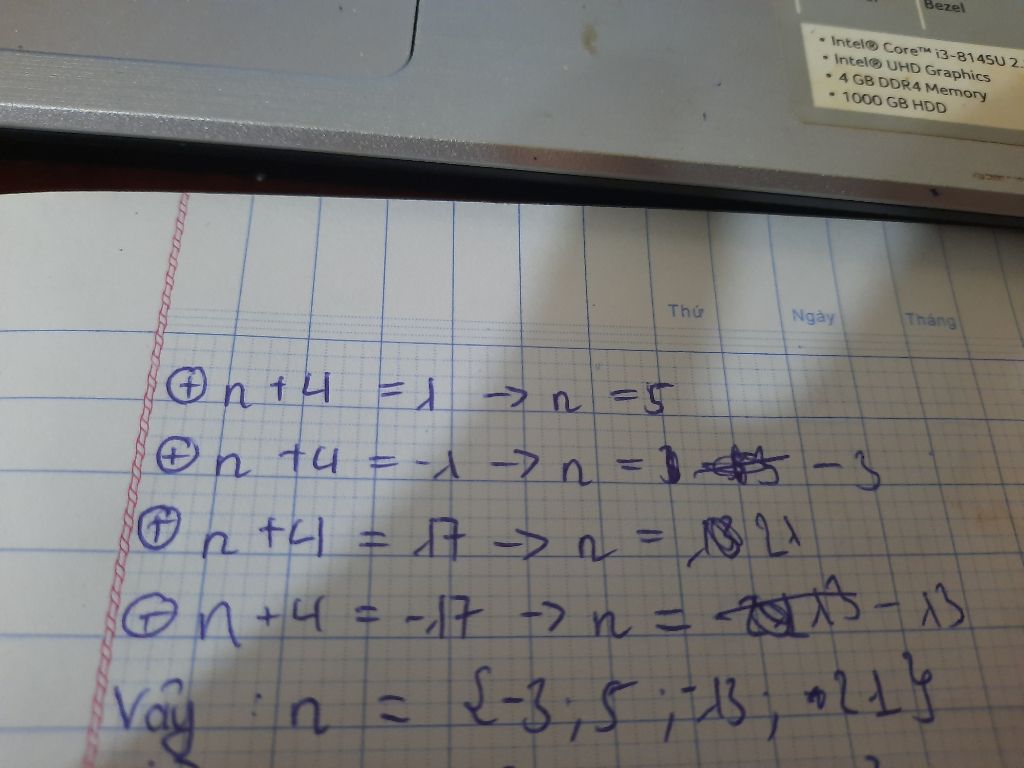 Bezel
• Intel® Core™ i3-8145U 2.
• Intel® UHD Graphics
• 4 GB DDR4 Memory
• 1000 GB HDD
Thứ Ngày Tháng
⊕ n + 4 = 1 → n = 5
⊕ n + 4 = -1 → n = - 3
⊕ n + 4 = 17 → n = 21
⊕ n + 4 = -17 → n = - 13
Vậy : n = {-3 ; 5 ; -13 ; 21}